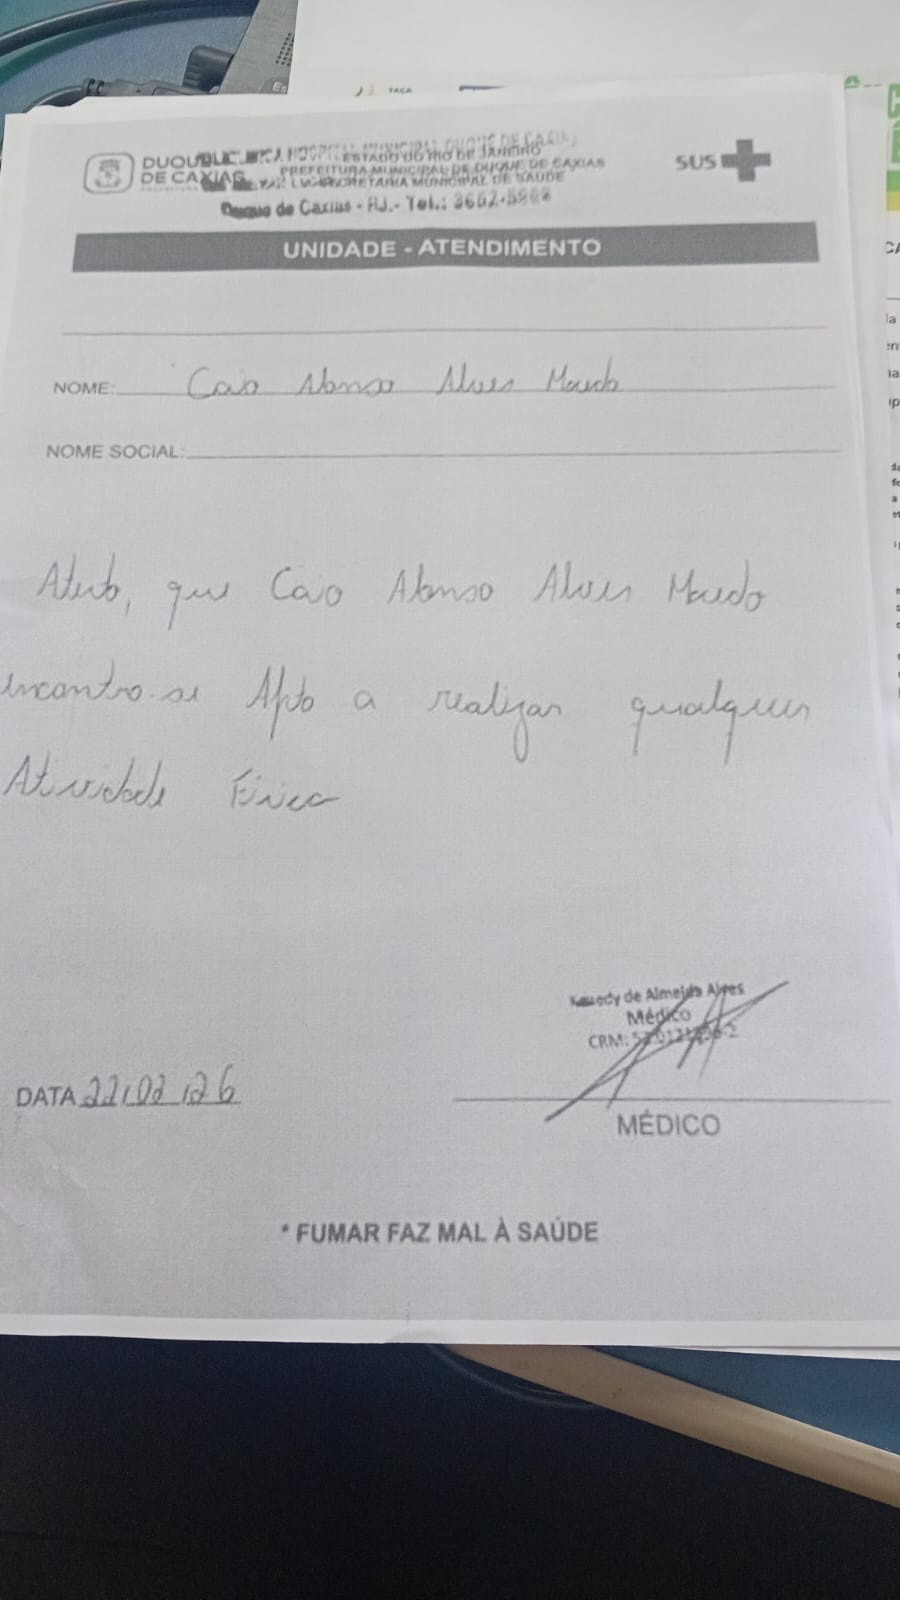 TAÇA
DUQUE DE CAXIAS
HOSPITAL MUNICIPAL DUQUE DE CAXIAS
ESTADO DO RIO DE JANEIRO
PREFEITURA MUNICIPAL DE DUQUE DE CAXIAS
SECRETARIA MUNICIPAL DE SAÚDE
Duque de Caxias - RJ.- Tel.:
SUS
UNIDADE - ATENDIMENTO
NOME: Caio Alonso Alves Macedo
NOME SOCIAL:
Atesto, que Caio Alonso Alves Macedo
encontra-se Apto a realizar qualquer
Atividade Física
de Almeida Alves
Médico
CRM:
DATA 22/02/26
MÉDICO
* FUMAR FAZ MAL À SAÚDE